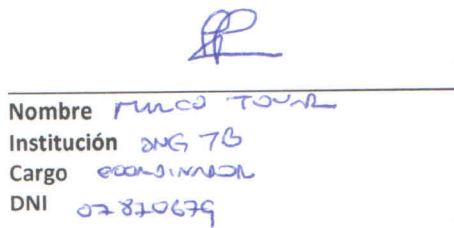 Nombre Marco Tovar
Institución ONG TB
Cargo COORDINADOR
DNI 07870679